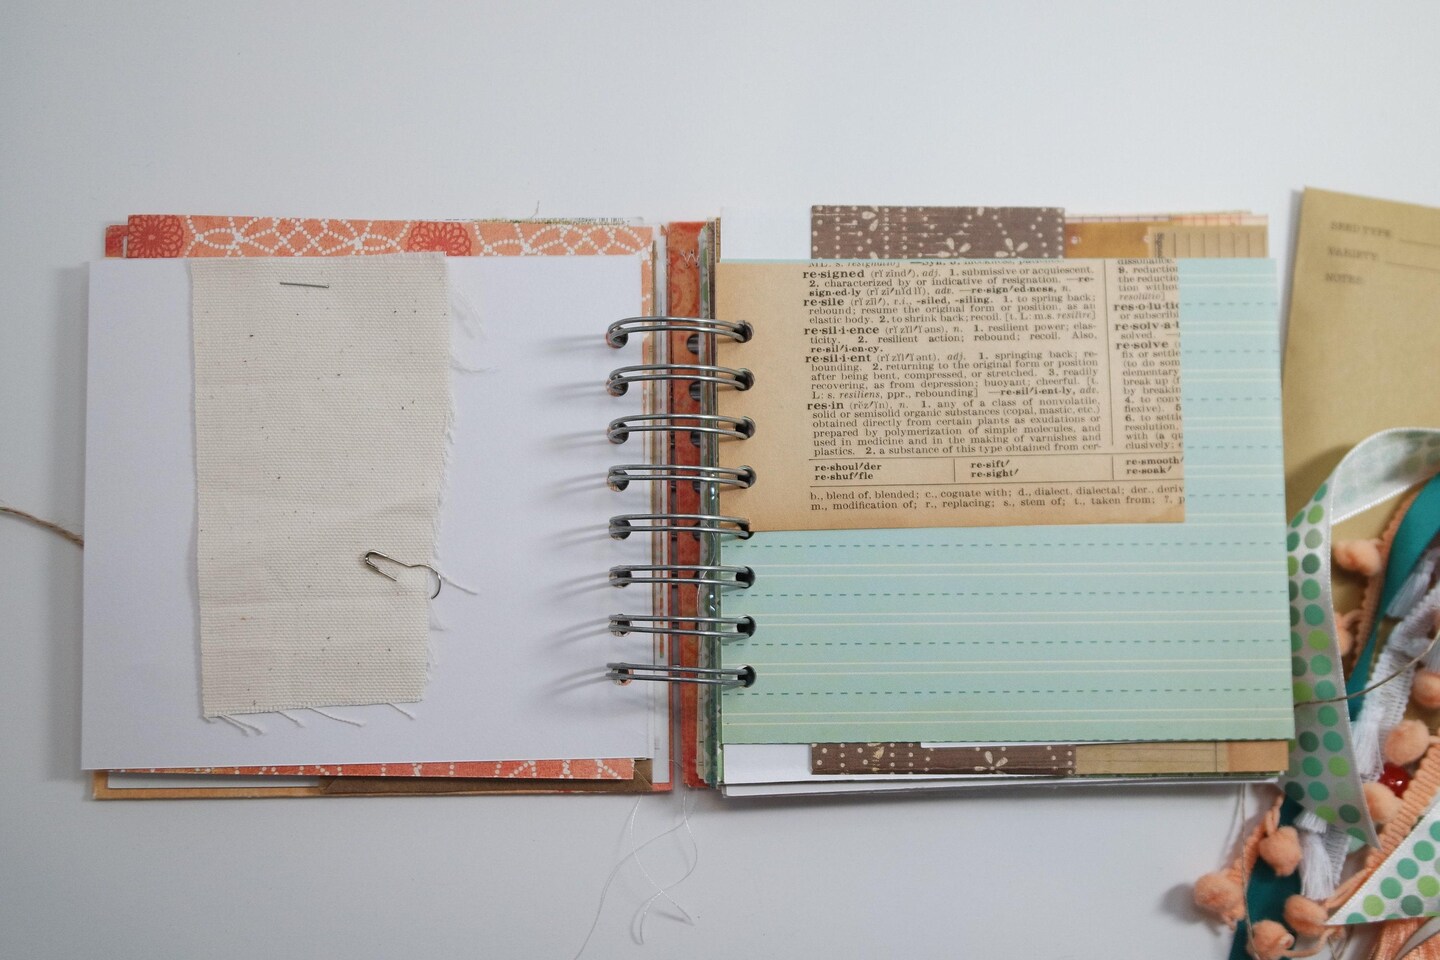 re·signed (rĭ zīnd′), adj. 1. submissive or acquiescent.
2. characterized by or indicative of resignation. —re-
sign·ed·ly (rĭ zī′nĭd lĭ), adv. —re·sign′ed·ness, n.
re·sile (rĭ zīl′), v.i., -siled, -siling. 1. to spring back;
rebound; resume the original form or position, as an
elastic body. 2. to shrink back; recoil. [t. L: m.s. resilīre]
re·sil·i·ence (rĭ zĭl′ĭ əns), n. 1. resilient power; elas-
ticity. 2. resilient action; rebound; recoil. Also,
re·sil′i·en·cy.
re·sil·i·ent (rĭ zĭl′ĭ ənt), adj. 1. springing back; re-
bounding. 2. returning to the original form or position
after being bent, compressed, or stretched. 3. readily
recovering, as from depression; buoyant; cheerful. [t.
L: s. resiliens, ppr., rebounding] —re·sil′i·ent·ly, adv.
res·in (rĕz′ĭn), n. 1. any of a class of nonvolatile,
solid or semisolid organic substances (copal, mastic, etc.)
obtained directly from certain plants as exudations or
prepared by polymerization of simple molecules, and
used in medicine and in the making of varnishes and
plastics. 2. a substance of this type obtained from cer-
dissonance.
9. reduction
the reductio
tion withou
resolūtio]
res·o·lu·ti
or subscrib
re·solv·a·
solved. —
re·solve (
fix or settle
(to do som
elementary
break up (
by breakin
4. to conv
flexive). 5
6. to settle
resolution.
with (a qu
clusively;
re·shoul′der re·sift′ re·smooth′
re·shuf′fle re·sight′ re·soak′
b., blend of, blended; c., cognate with; d., dialect, dialectal; der., deriv
m., modification of; r., replacing; s., stem of; t., taken from; ?, p
SEED TYPE:
VARIETY:
NOTES: